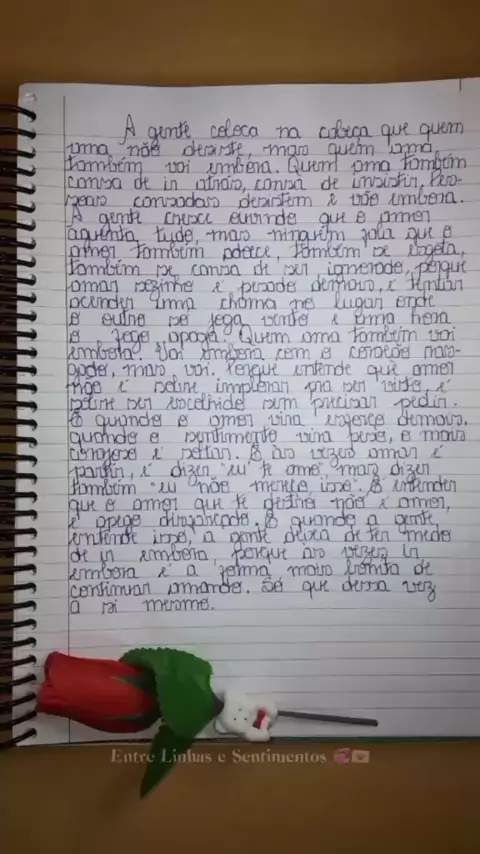 A gente coloca na cabeça que quem
ama não desiste, mas quem ama
também vai embora. Quem ama também
cansa de ir atrás, cansa de insistir. Pes-
soas cansadas desistem e vão embora.
A gente cresce ouvindo que o amor
aguenta tudo, mas ninguém fala que o
amor também adoece, também se esgota,
também se cansa de ser ignorado, porque
amar sozinho é pesado demais, é tentar
acender uma chama no lugar onde
o outro só joga vento e uma hora
o fogo apaga. Quem ama também vai
embora. Vai embora com o coração ras-
gado, mas vai. Porque entende que amor
não é sobre implorar pra ser visto, é
sobre ser escolhido sem precisar pedir.
E quando o amor vira esforço demais,
quando o sentimento vira peso, o mais
corajoso é soltar. E às vezes amar é
partir, é dizer "eu te amo" mas dizer
também "eu não mereço isso". É entender
que o amor que te destrói não é amor,
é apego disfarçado. E quando a gente
entende isso, a gente deixa de ter medo
de ir embora porque às vezes ir
embora é a forma mais bonita de
continuar amando. Só que dessa vez
a si mesmo.
Entre Linhas e Sentimentos 💞💌